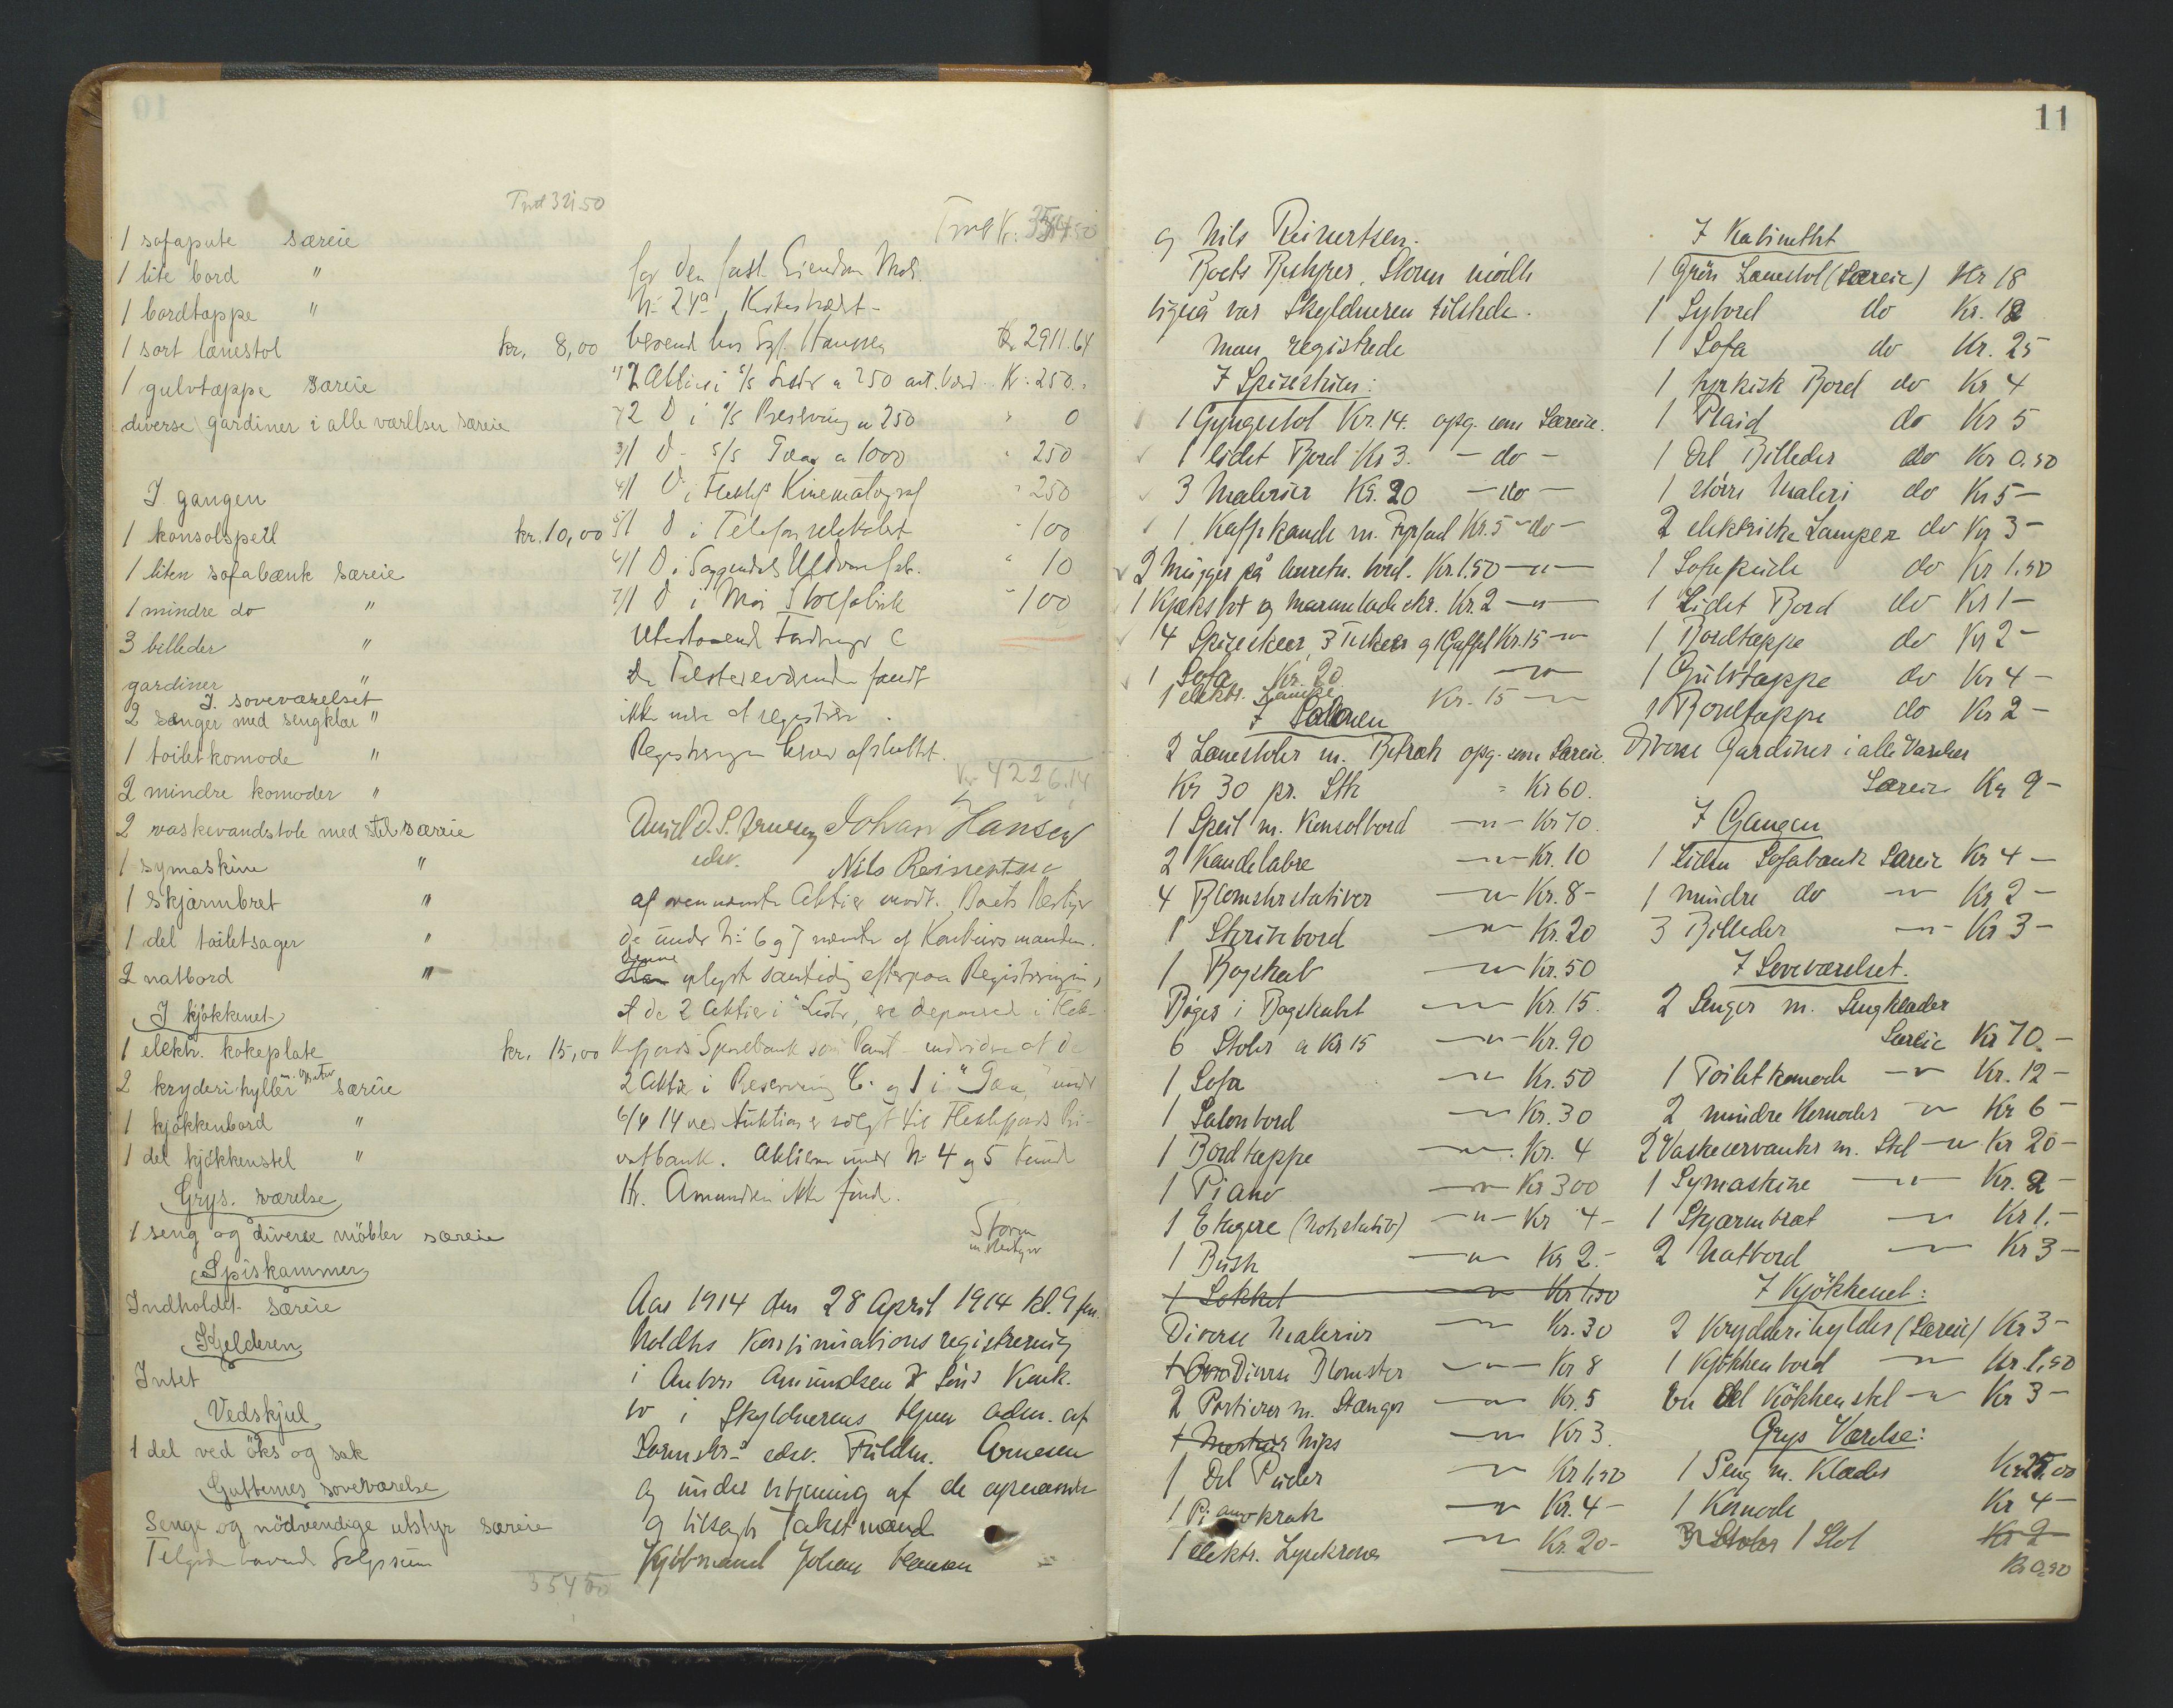 11
321.50
1 sofapute særeie
1 lite bord "
1 bordtæppe "
1 sort lænestol kr. 8,00
1 gulvtæppe særeie
diverse gardiner i alle værelser særeie
I gangen
1 konsolspeil kr. 10,00
1 liten sofabænk særeie
1 mindre do "
3 billeder "
gardiner "
I soveværelset
2 senger med sengklær "
1 toiletkomode "
2 mindre komoder "
2 vaskevandstole med stel særeie
1 symaskine "
1 skjærmbret "
1 del toiletsager "
2 natbord "
I kjökkenet
1 elektr. kokeplate kr. 15,00
2 kryderihyller særeie
1 kjökkenbord "
1 del kjökkenstel "
Grys. værelse
1 seng og diverse möbler særeie
Spiskammer
Indholdet særeie
Kjelderen
Intet
Vedskjul
1 del ved öks og sak
Gutternes soveværelse
Senge og nödvendige utstyr særeie
354 50
for den fast. Eiendom Matr.
Nr 24a
beroend hos Sgf. Hansen Kr 2911.64
1) 2 Aktier i S/S Lister a 250 ant. Værd Kr. 250.
2) 2 D i S/S a 250 " 0
3) 1 D - S/S a 1000 " 250
4) 1 D i Flekkefj. Kinematograf " 250
5) 1 D i Telefonselskabet " 100
6) 1 D i Uldvarefab. " 10
7) 1 D i Moi " 100
Utestaaende Fordringer
De Tilstedeværende fandt
ikke mere at registrere.
Registreringen blev afsluttet.
Kr 4226.14
Johan Hansen
edsv.
Nils Reinertsen
af ovennævnte Aktier modt. Boets Bestyrer
de under Nr 6 og 7 nævnte af Konkursmanden.
Denne oplyste samtidig efterpaa Registreringen,
at de 2 Aktier i "Lister" er deponeret i Flek-
kefjords Sparebank som Pant - endvidere at de
2 Aktier i og 1 i under
6/4 14 ved Auktion er solgt til Flekkefjords Pri-
vatbank. Aktierne under Nr 4 og 5 kunde
Hr. Amundsen ikke finde.
Storm
Aar 1914 den 28 April 1914 kl. 9 fm.
holdtes Kontinuationsregistrering
i Anton Amundsen & Söns Konk.
bo i Skyldnerens Hjem adm. af
edsv. Fuldm. Arnesen
og under betjening af de opnævnte
og tilsagte Takstmænd
Kjöbmand Johan Hansen
og Nils Reinertsen.
Boets Bestyrer, Storm mödte
ligeså var Skyldneren tilstede.
Man registrede
I Spisestuen:
1 Gyngestol Kr. 14. opg. som Særeie.
1 lidet Bord Kr 3. - do -
3 Malerier Kr. 20 - do -
1 Kaffekande m. Fyrfad Kr. 5 - do -
2 Mugger på Anretn. bord. Kr. 1.50 - " -
1 Kjæksbot og Marmeladeskr. Kr. 2 - " -
4 Spiseskeer, 3 Teskeer og 1 Gaffel Kr. 15 - " -
1 Sofa Kr. 20 - " -
1 elektr. Lampe Kr. 15 - " -
I Salonen
2 Lænestoler m. Betræk opg. som Særeie.
Kr 30 pr. Stk = Kr 60.
1 Speil m. Konsolbord - " - Kr 70.
2 Kandelabre - " - Kr. 10
4 Blomsterstativer - " - Kr. 8 -
1 Skrivebord - " - Kr. 20
1 Bogskab - " - Kr. 50
Böger i Bogskabet - " - Kr. 15.
6 Stoler a Kr 15 - " - Kr. 90
1 Sofa - " - Kr. 50
1 Salonbord - " - Kr. 30
1 Bordtæppe - " - Kr. 4
1 Piano - " - Kr 300
1 Etagere (Notestativ) - " - Kr 4 -
1 Busk - " - Kr 2. -
1 Sokkel - " - Kr 1,50
Diverse Malerier - " - Kr. 30
Diverse Blomster - " - Kr 8
2 Portierer m. Stænger - " - Kr. 5
Nips - " - Kr 3.
1 Del Puder - " - Kr 1,50
1 Pianokrak - " - Kr. 4 -
1 elektr. Lysekrone - " - Kr. 20 -
I Kabinettet
1 Grön Lænestol (Særeie) Kr 18
1 Sybord do Kr. 12
1 Sofa do Kr. 25
1 tyrkisk Bord do Kr 4
1 Plaid do Kr 5
1 Del Billeder do Kr 0.50
1 större Maleri do Kr 5 -
2 elektriske Lamper do Kr 3 -
1 Sofapude do Kr 1.50
1 Lidet Bord do Kr 1 -
1 Bordtæppe do Kr 2 -
1 Gulvtæppe do Kr 4 -
1 Bordtæppe do Kr 2 -
Diverse Gardiner i alle Værelser
Særeie Kr 9 -
I Gangen
1 liden Sofabænk Særeie Kr 4 -
1 mindre do - " - Kr 2 -
3 Billeder - " - Kr 3 -
I Soveværelset.
2 Senger m. Sengklæder
Særeie Kr 70. -
1 Toiletkomode - " - Kr. 12 -
2 mindre Komoder - " - Kr 6 -
2 Vaskeservanter m. Stel - " - Kr 20 -
1 Symaskine - " - Kr. 2 -
1 Skjærmbræt - " - Kr 1. -
2 Natbord - " - Kr 3 -
I Kjökkenet:
2 Krydderihylder (Særeie) Kr 3 -
1 Kjökkenbord - " - Kr. 1,50
En del Kökkenstel - " - Kr 3 -
Grys Værelse:
1 Seng m. Klæder Kr 25,00
1 Komode Kr 4 -
3 Stoler 1 Stol Kr 2
Kr 0,50